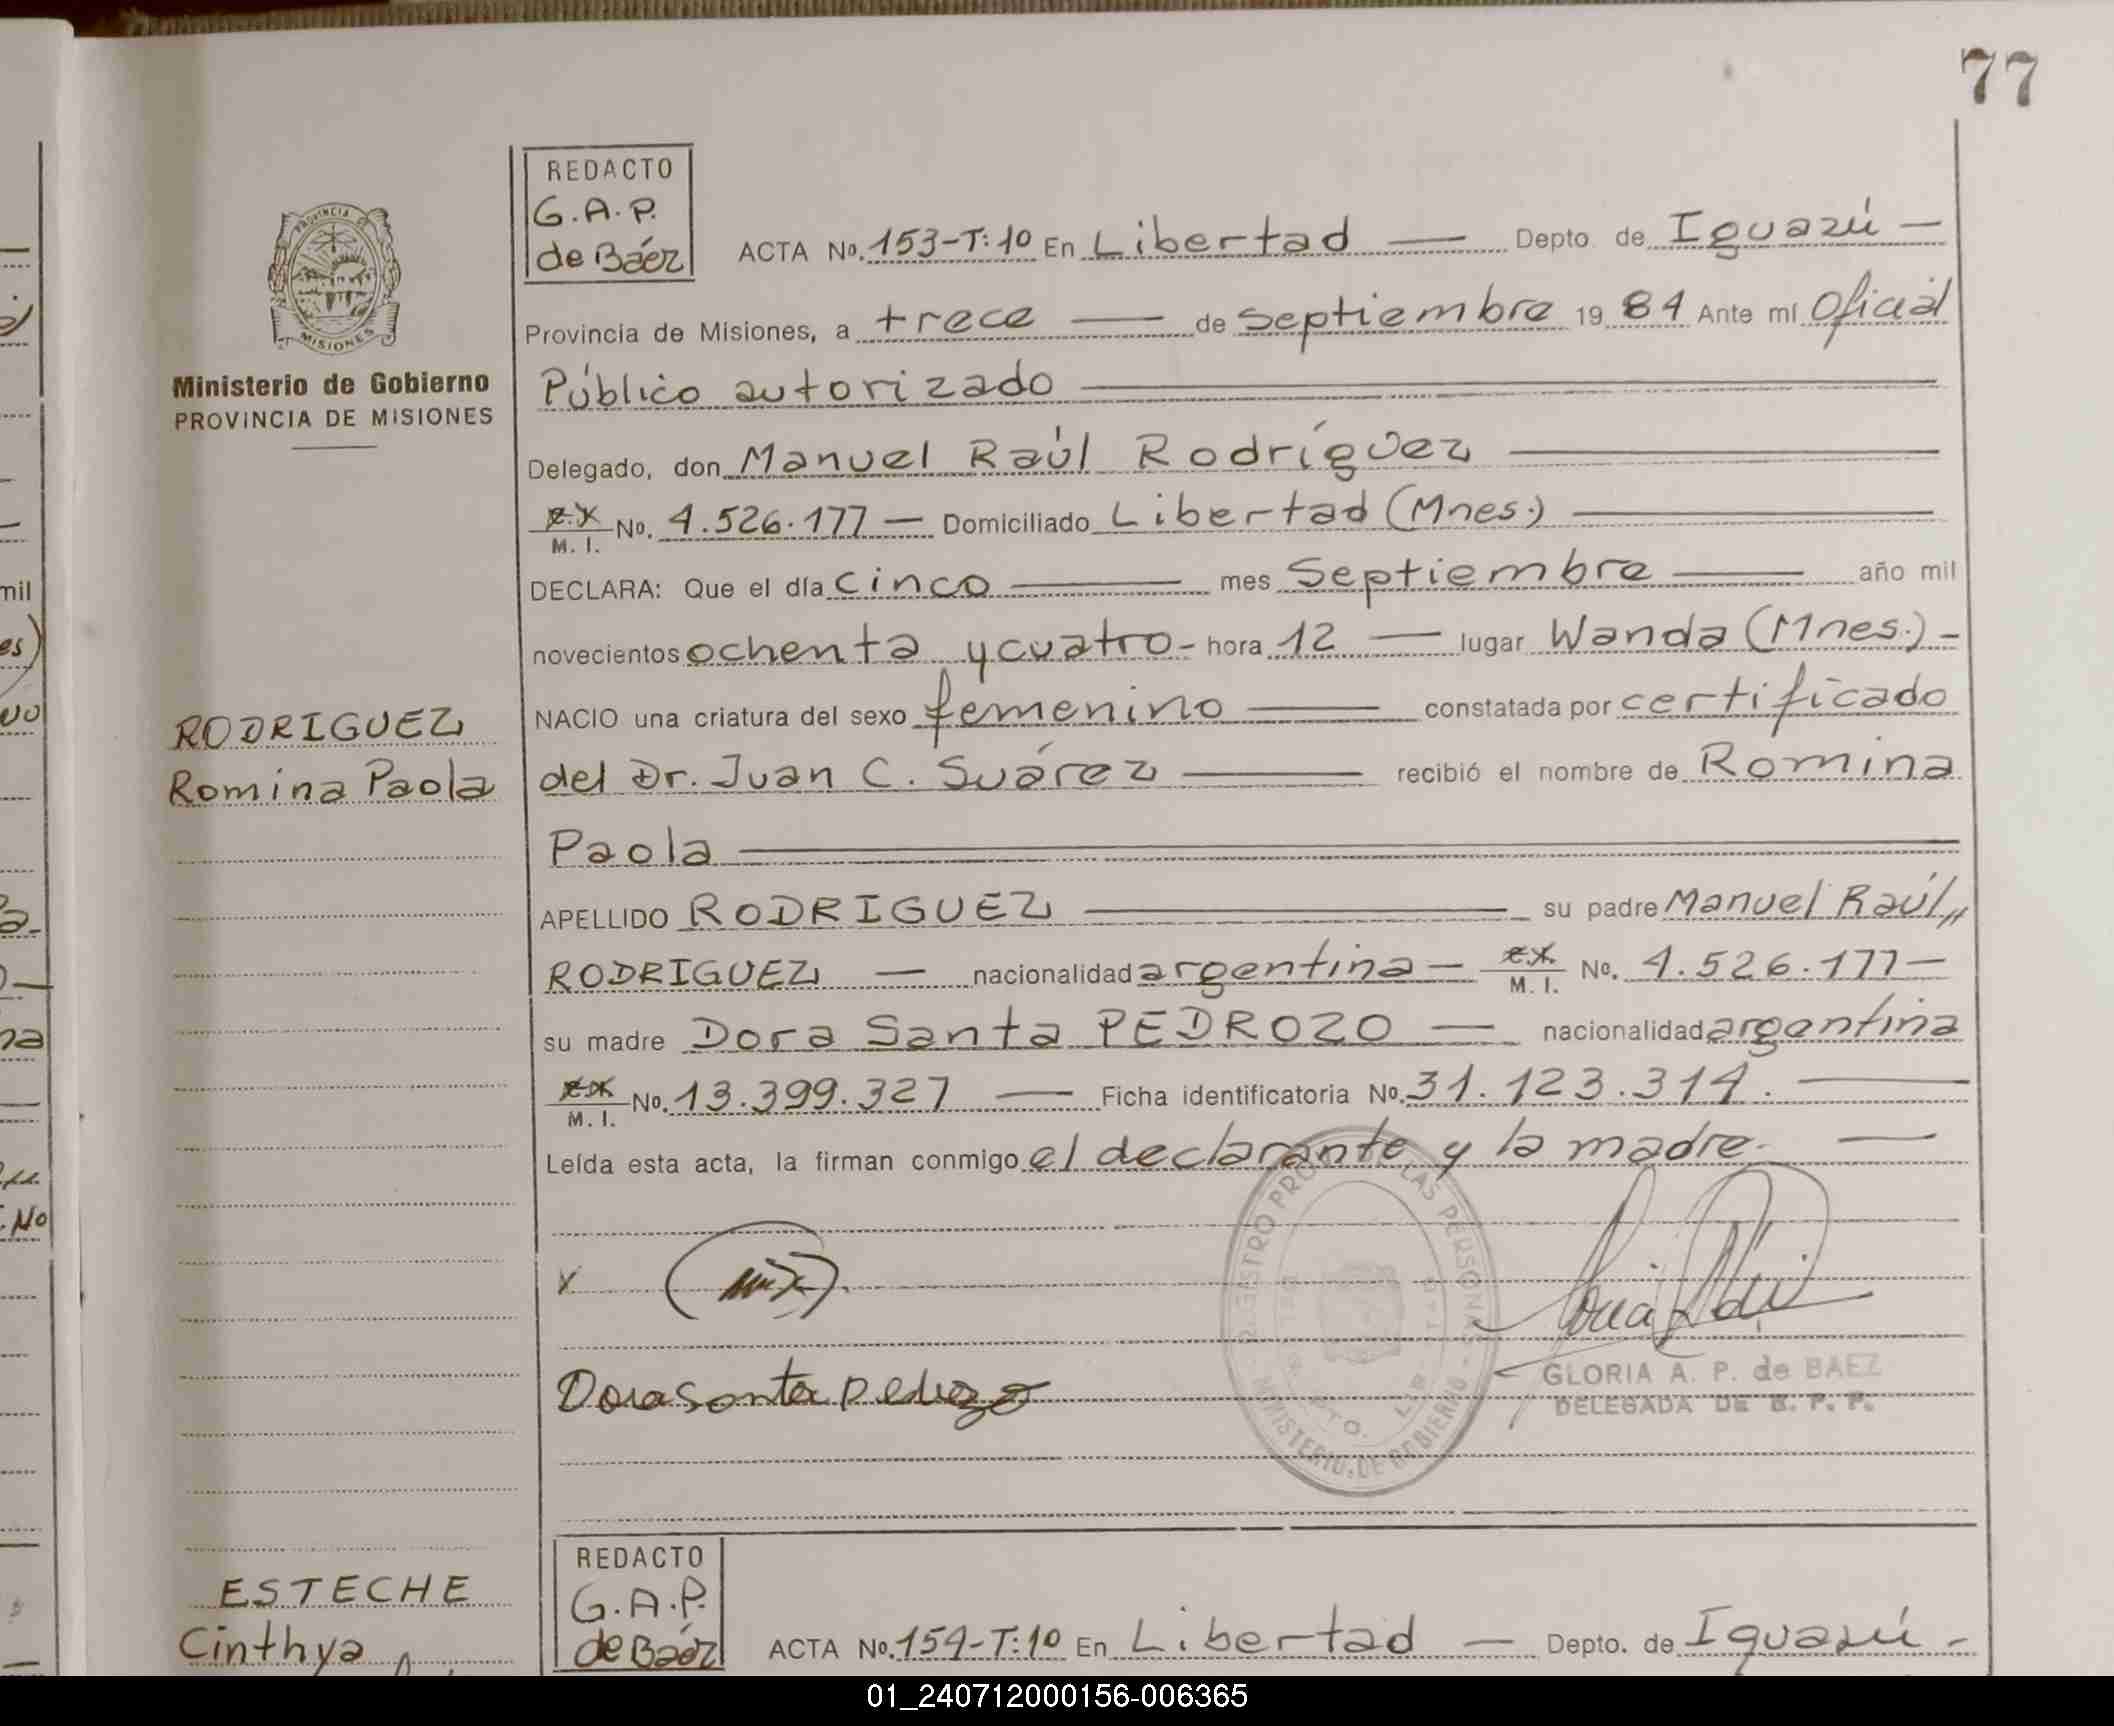 77
REDACTO
G.A.P.
de Báez
ACTA No. 153-T:1º En Libertad — Depto. de Iguazú —
PROVINCIA DE
MISIONES
Ministerio de Gobierno
PROVINCIA DE MISIONES
Provincia de Misiones, a trece — de Septiembre 19 84 Ante mí Oficial
Público autorizado
Delegado, don Manuel Raúl Rodríguez
M. I. No. 4.526.177 — Domiciliado Libertad (Mnes.)
DECLARA: Que el día cinco — mes Septiembre — año mil
novecientos ochenta y cuatro - hora 12 — lugar Wanda (Mnes.) -
RODRIGUEZ
Romina Paola
NACIO una criatura del sexo femenino — constatada por certificado
del Dr. Juan C. Suárez — recibió el nombre de Romina
Paola
APELLIDO RODRIGUEZ — su padre Manuel Raúl,,
RODRIGUEZ — nacionalidad argentina — M. I. No. 4.526.177 —
su madre Dora Santa PEDROZO — nacionalidad argentina
M. I. No. 13.399.327 — Ficha identificatoria No. 31.123.314. —
Leída esta acta, la firman conmigo el declarante y la madre. —
Dora Santa Pedrozo
GLORIA A. P. de BAEZ
DELEGADA DE R. P. P.
MINISTERIO DE GOBIERNO
ESTECHE
Cinthya
REDACTO
G.A.P.
de Báez
ACTA No. 154-T:1º En Libertad — Depto. de Iguazú -
01_240712000156-006365